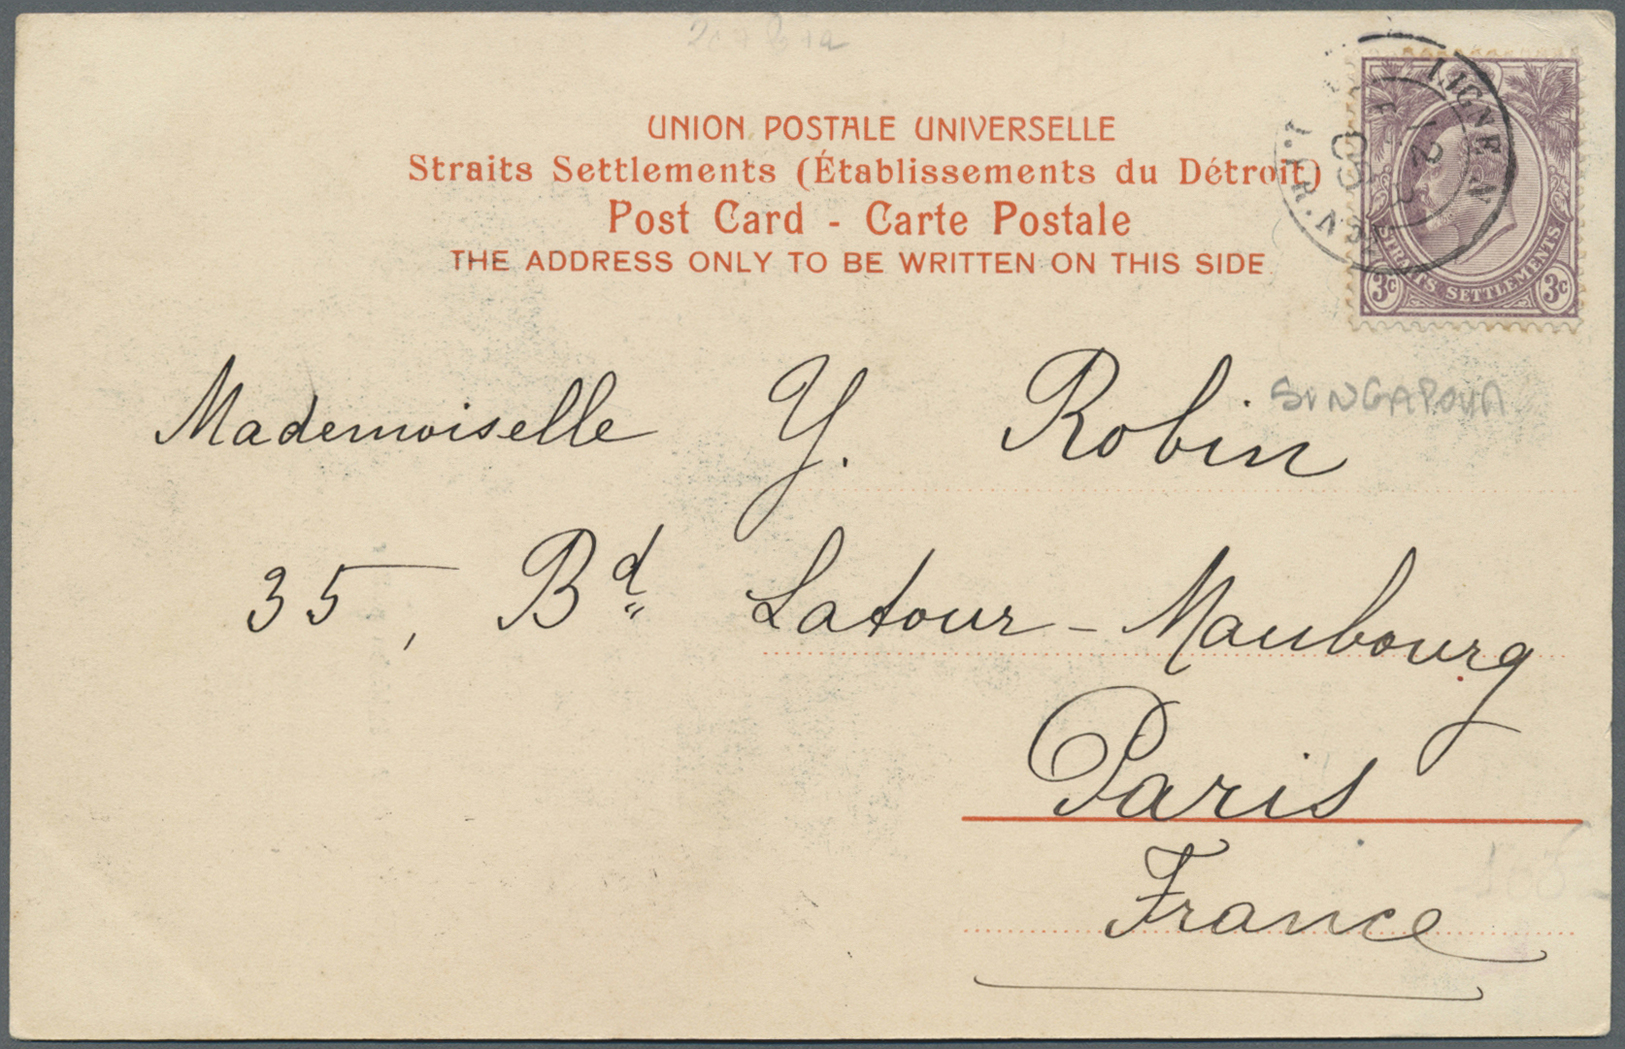 UNION POSTALE UNIVERSELLE
Straits Settlements (Établissements du Détroit)
Post Card - Carte Postale
THE ADDRESS ONLY TO BE WRITTEN ON THIS SIDE
LIGNE N
STRAITS SETTLEMENTS
3c 3c
SINGAPOUR
Mademoiselle Y. Robin
35, Bd Latour-Maubourg
Paris
France